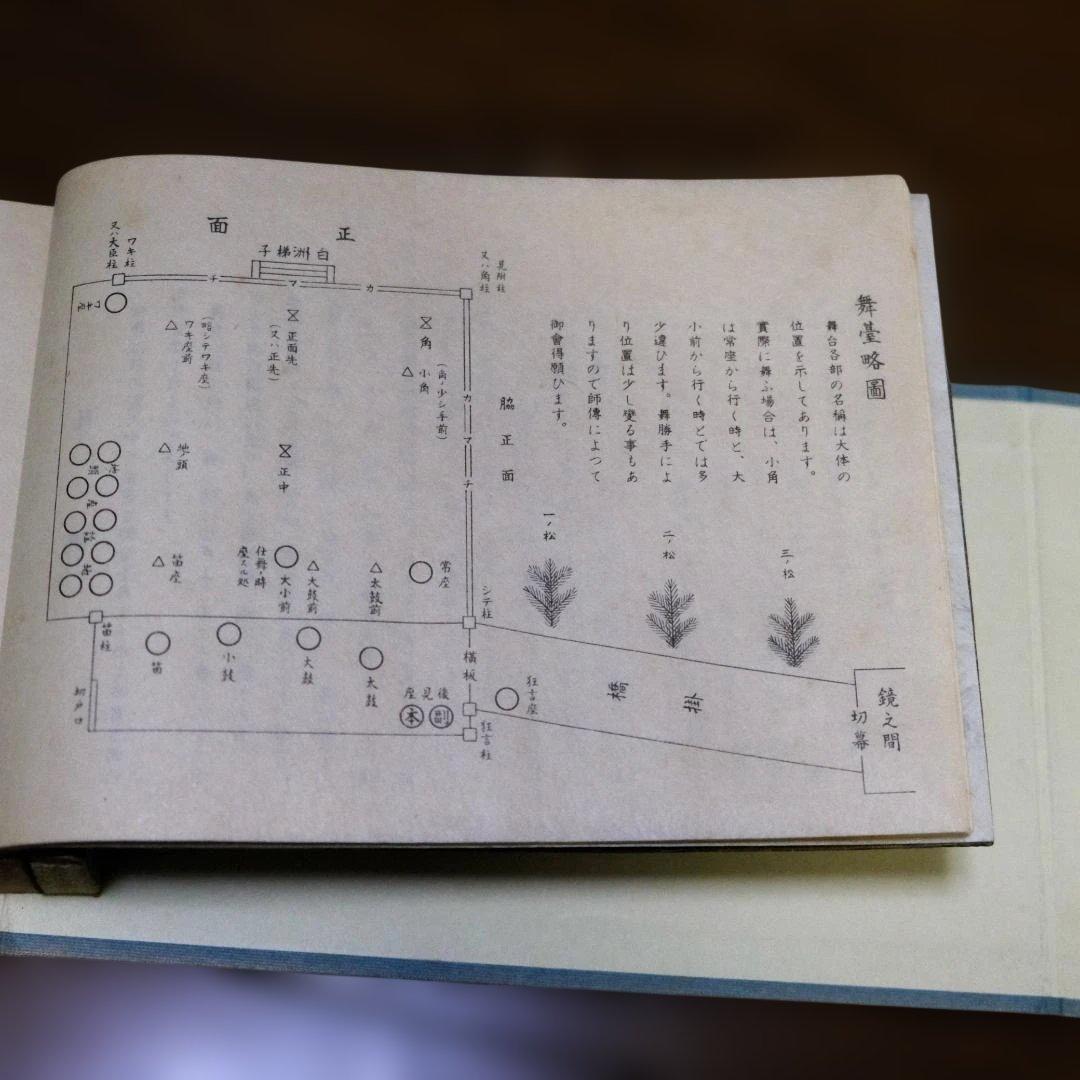 舞臺略圖
舞台各部の名稱は大体の
位置を示してあります。
實際に舞ふ場合は、小角
は常座から行く時と、大
小前から行く時とでは多
少違ひます。舞勝手によ
り位置は少し變る事もあ
りますので師傳によつて
御會得願ひます。
鏡之間
切幕
三ノ松
二ノ松
一ノ松
掛
橋
狂言座
脇正面
見附柱
又ハ角柱
シテ柱
横板
狂言柱
後見座
副
本
正面
白洲梯子
カ
マ
チ
カ
マ
チ
角
小角
(角ノ少シ手前)
正面先
(又ハ正先)
正中
常座
太鼓前
大鼓前
大小前
仕舞ノ時
座スル処
ワキ柱
又ハ大臣柱
ワキ座
(略シテワキ座)
ワキ座前
地ノ頭
笛座
笛柱
太鼓
大鼓
小鼓
笛
切戸口